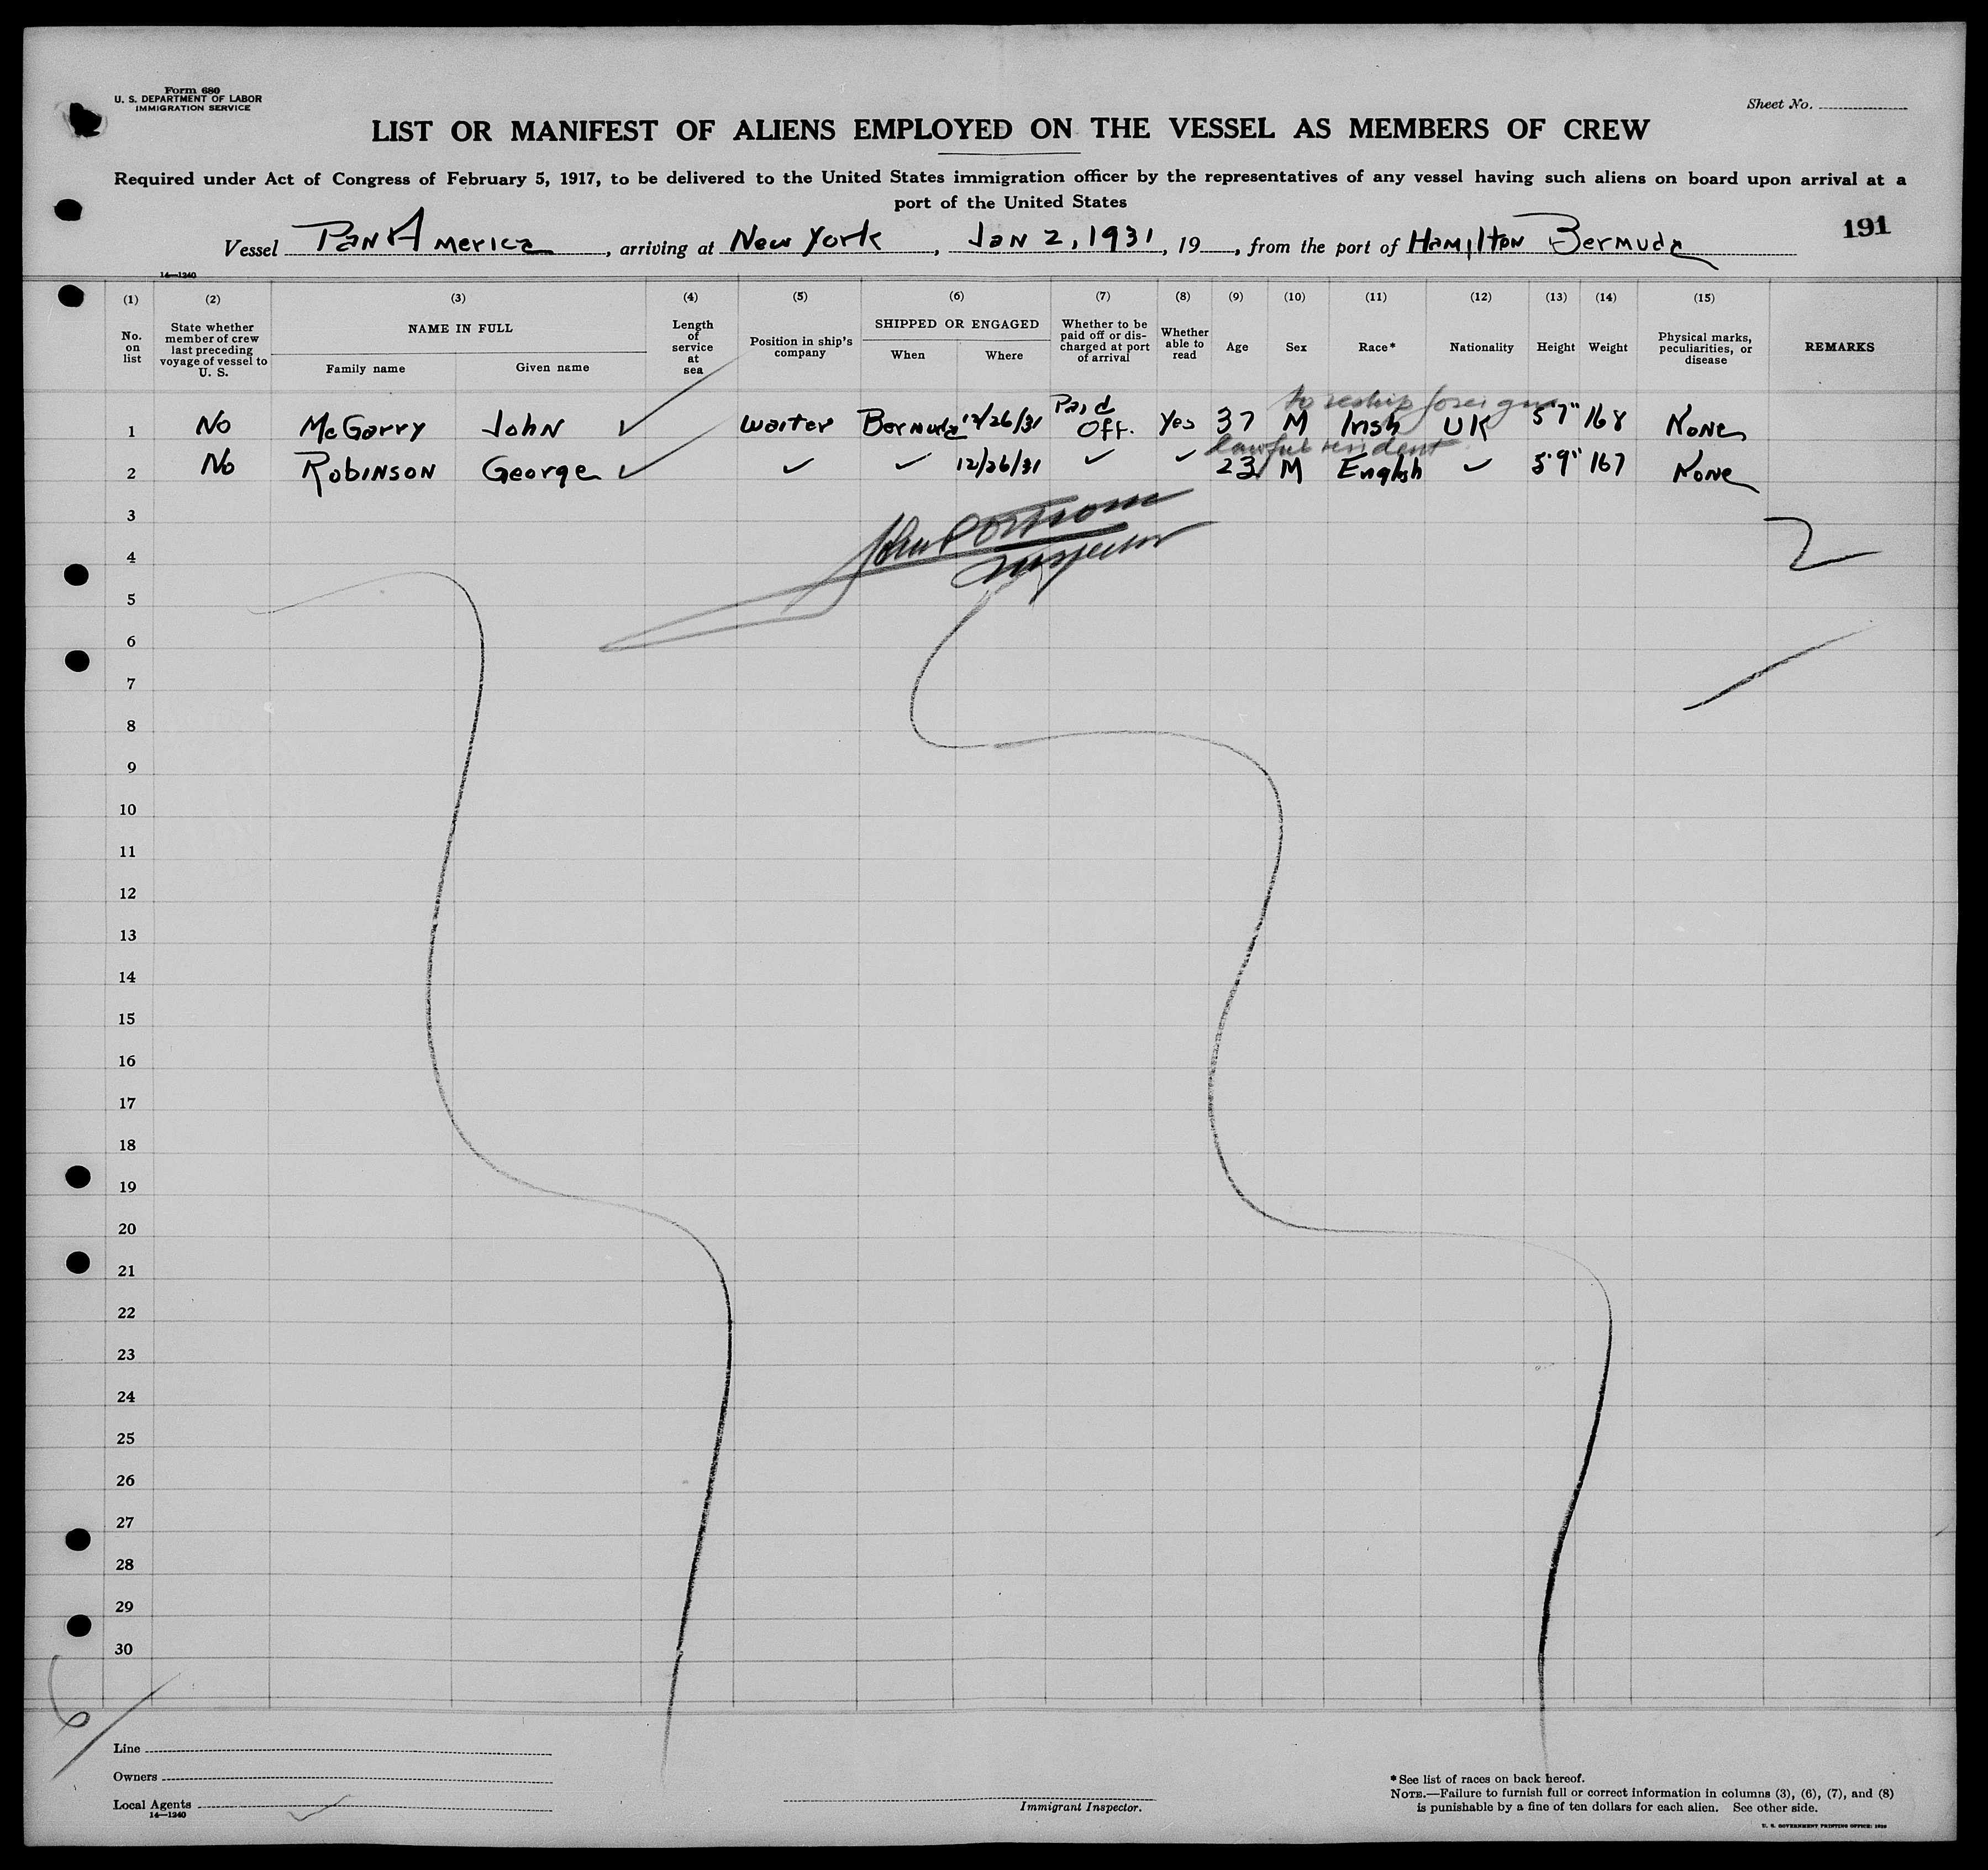 Form 680
U. S. DEPARTMENT OF LABOR
IMMIGRATION SERVICE
Sheet No.
LIST OR MANIFEST OF ALIENS EMPLOYED ON THE VESSEL AS MEMBERS OF CREW
Required under Act of Congress of February 5, 1917, to be delivered to the United States immigration officer by the representatives of any vessel having such aliens on board upon arrival at a
port of the United States
191
Vessel Pan America, arriving at New York, Jan 2, 1931, 19, from the port of Hamilton Bermuda
14—1240
(1) (2) (3) (4) (5) (6) (7) (8) (9) (10) (11) (12) (13) (14) (15)
No. on list
State whether member of crew last preceding voyage of vessel to U. S.
NAME IN FULL
Family name Given name
Length of service at sea
Position in ship's company
SHIPPED OR ENGAGED
When Where
Whether to be paid off or discharged at port of arrival
Whether able to read
Age Sex Race* Nationality Height Weight
Physical marks, peculiarities, or disease
REMARKS
to reship foreign
1 No McGarry John ✓ Waiter Bermuda 12/26/31 Paid Off. Yes 37 M Irish UK 5'7" 168 None
lawful resident
2 No Robinson George ✓ ✓ ✓ 12/26/31 ✓ ✓ 23 M English ✓ 5'9" 167 None
3
John
Inspector
2
4
5
6
7
8
9
10
11
12
13
14
15
16
17
18
19
20
21
22
23
24
25
26
27
28
29
30
Line
Owners
Local Agents
14—1240
Immigrant Inspector.
*See list of races on back hereof.
NOTE.—Failure to furnish full or correct information in columns (3), (6), (7), and (8)
is punishable by a fine of ten dollars for each alien. See other side.